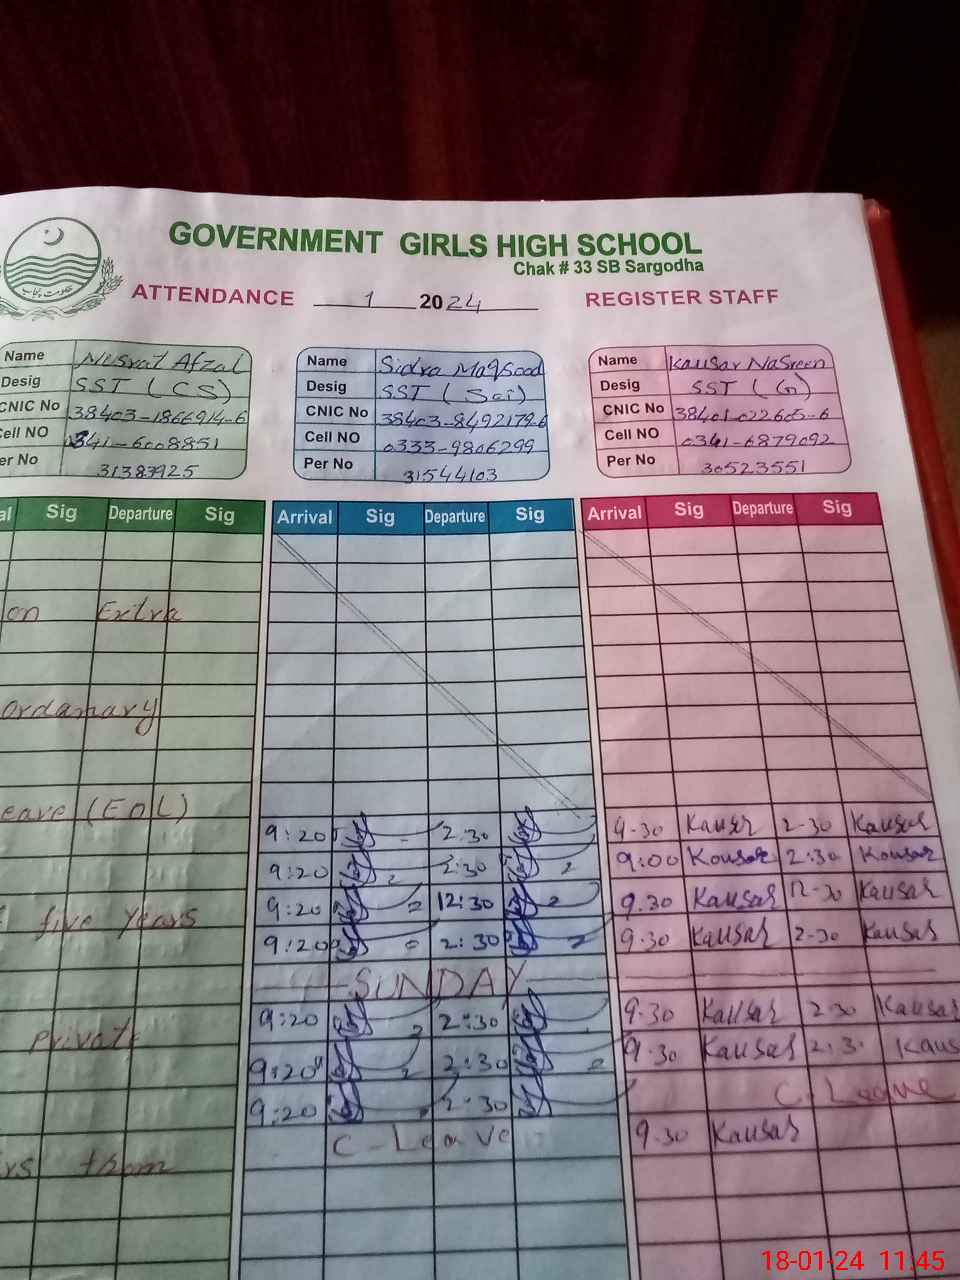 GOVERNMENT GIRLS HIGH SCHOOL
Chak # 33 SB Sargodha
حکومت پنجاب
ATTENDANCE 1 2024 REGISTER STAFF
Name Nusrat Afzal Name Sidra Maqsood Name Kausar Nasreen
Desig SST (CS) Desig SST (Sci) Desig SST (G)
CNIC No 38403-1866914-6 CNIC No 38403-8492179-6 CNIC No 38401-022605-6
Cell NO 0341-6008851 Cell NO 0333-9806299 Cell NO 0341-6879092
er No 31383925 Per No 31544103 Per No 30523551
al Sig Departure Sig Arrival Sig Departure Sig Arrival Sig Departure Sig
on Extra
ordanary
eave (EOL)
9:20 2:30 9-30 Kausar 2-30 Kausar
9:20 2:30 9:00 Kousar 2:30 Kousar
five years 9:20 12:30 9.30 Kausar 12-30 Kausar
9:20 2:30 9.30 Kausar 2-30 Kausar
SUNDAY
private 9:20 2:30 9.30 Kausar 2.30 Kausar
9:20 2:30 9.30 Kausar 2:3. Kaus
9:20 2:30 C. Leave
C-Leave 9.30 Kausar
rs them
18-01-24 11:45